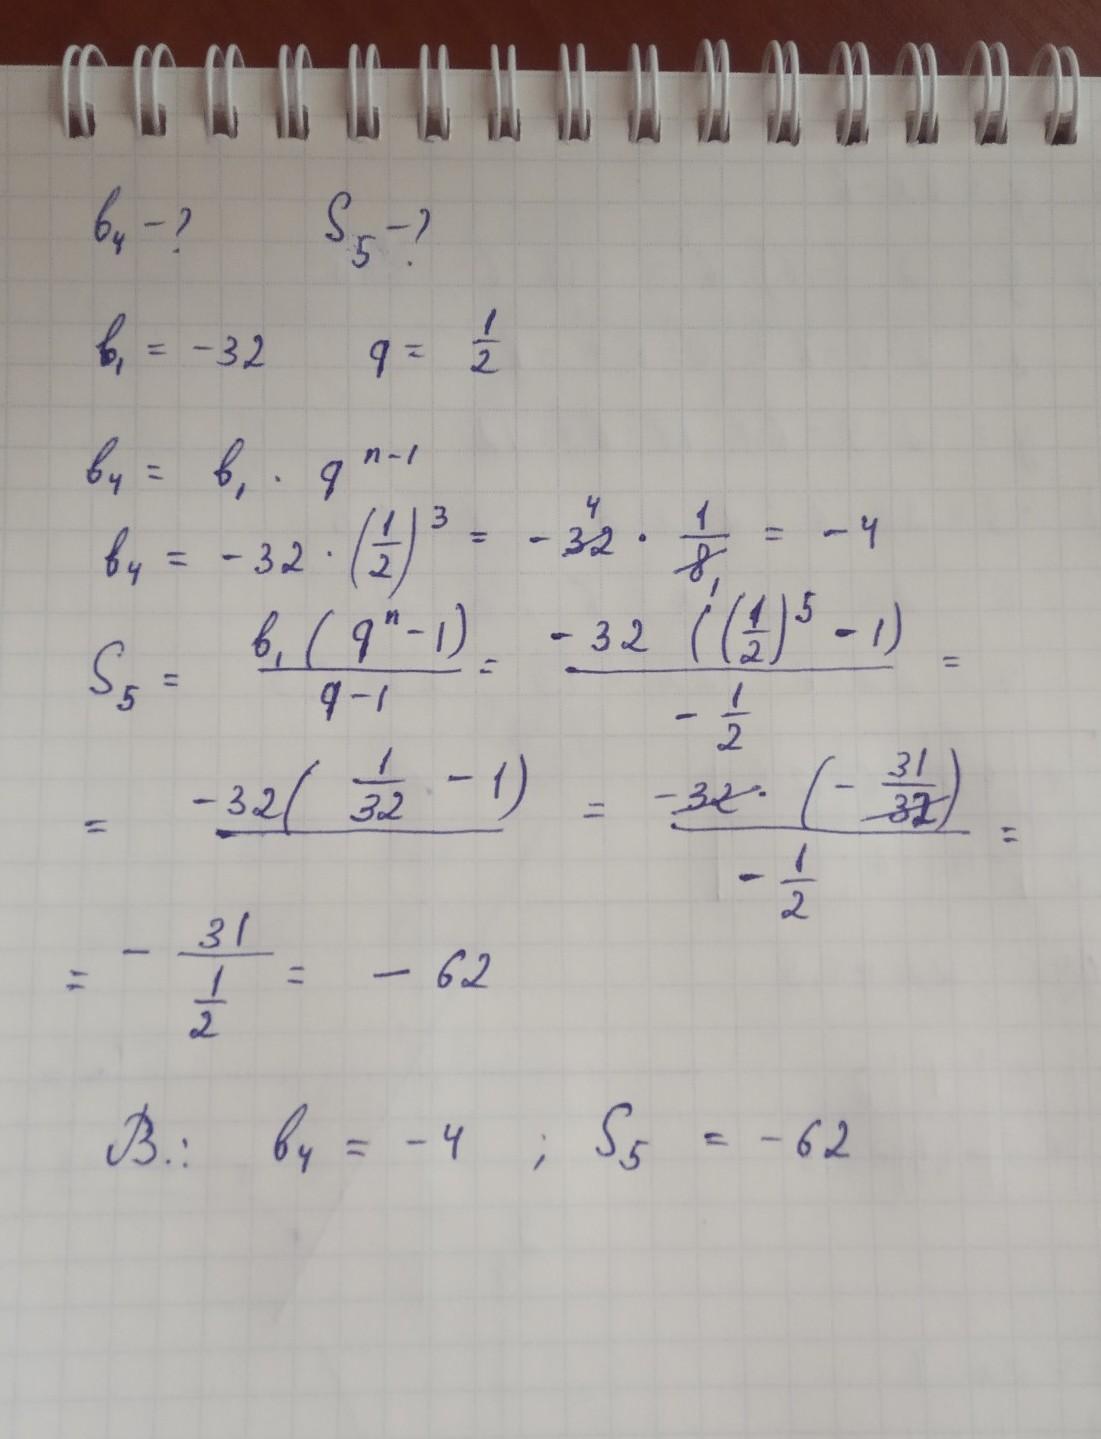 b₄ - ? S₅ - ?
b₁ = -32 q = 1/2
b₄ = b₁ · qⁿ⁻¹
b₄ = -32 · (1/2)³ = -32 4 · 1/8 1 = -4
S₅ = b₁(qⁿ - 1)/(q - 1) = -32((1/2)⁵ - 1)/(-1/2) =
= -32(1/32 - 1) = -32 · (-31/32)/(-1/2) =
= -31/(1/2) = -62
В.: b₄ = -4 ; S₅ = -62